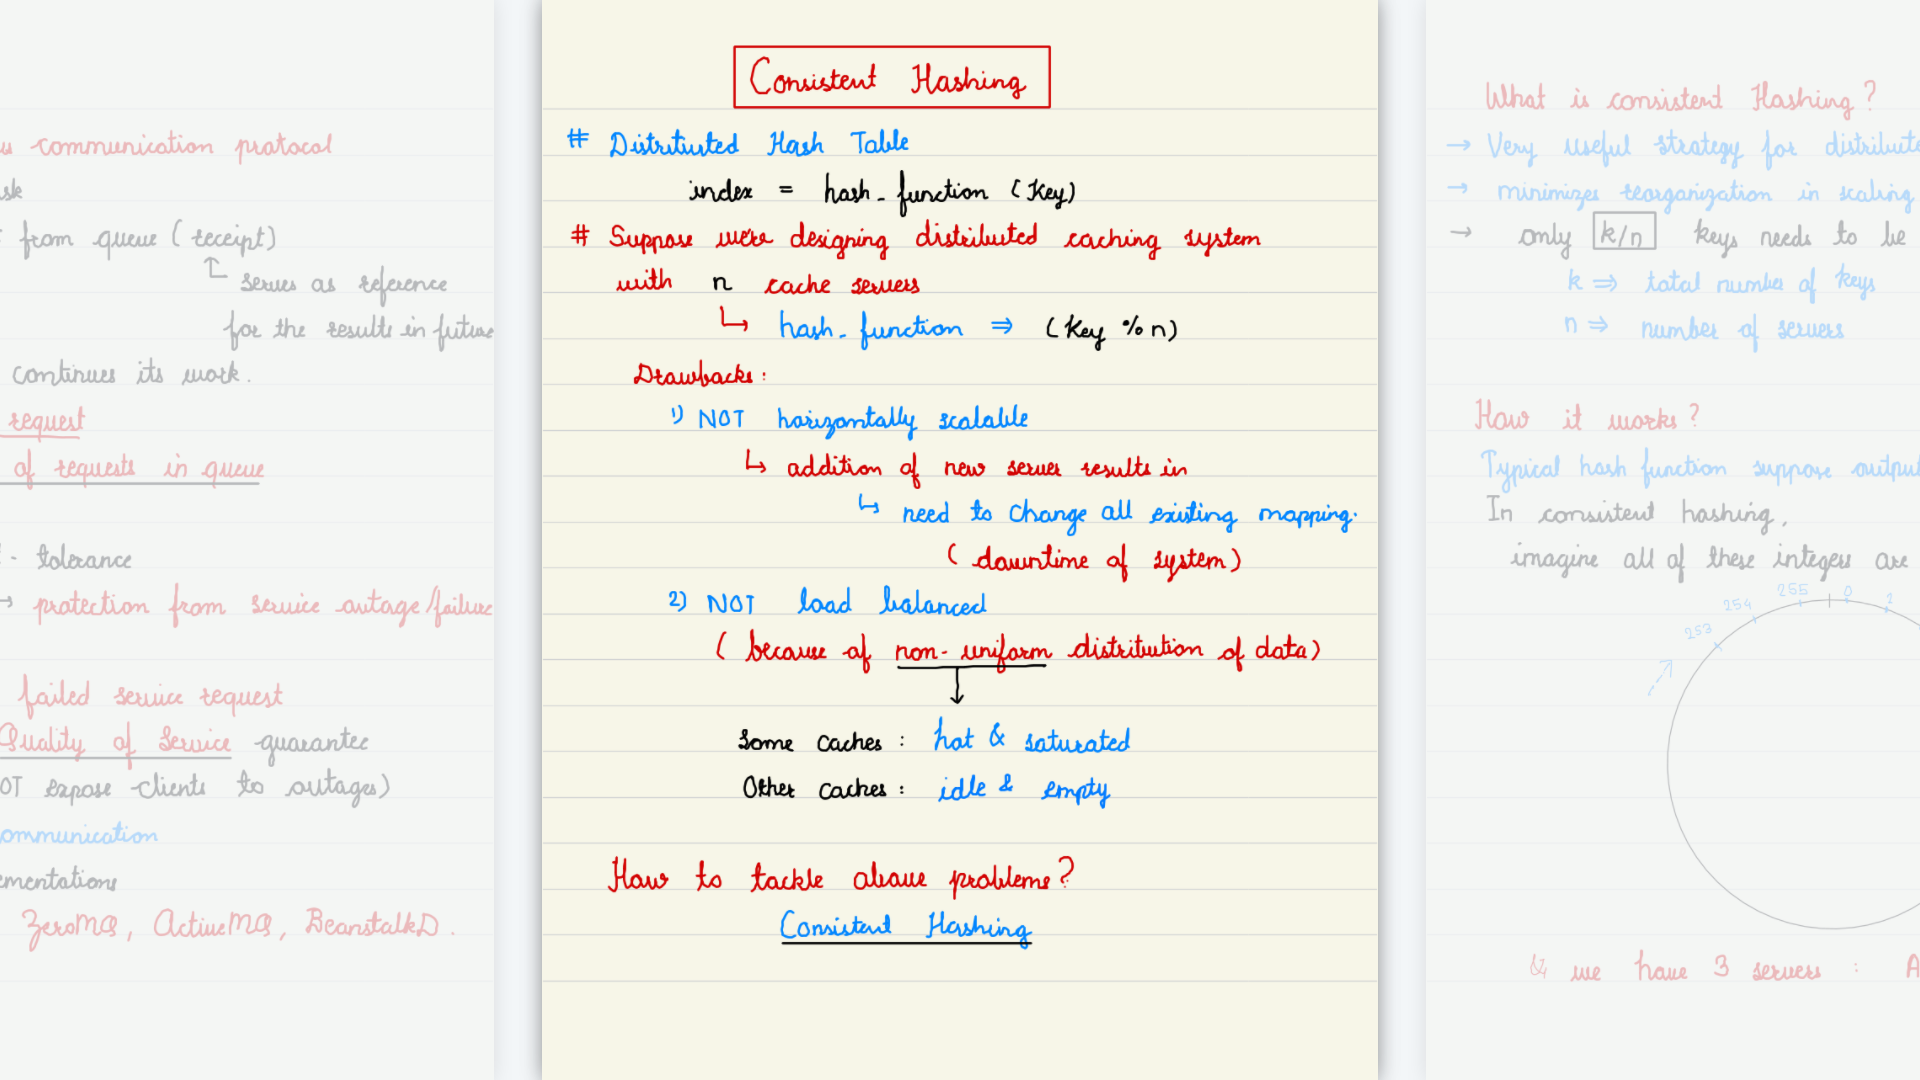 u communication protocol
sk
from queue (receipt)
serves as reference
for the results in future
continues its work.
request
of requests in queue
- tolerance
→ protection from service outage/failure
failed service request
Quality of Service guarantee
OT expose clients to outages)
ommunication
ementations
ZeroMQ, ActiveMQ, BeanstalkD.
Consistent Hashing
# Distributed Hash Table
index = hash_function (Key)
# Suppose we're designing distributed caching system
with n cache servers
↳ hash_function ⇒ (Key % n)
Drawbacks:
1) NOT horizontally scalable
↳ addition of new server results in
↳ need to change all existing mapping.
(downtime of system)
2) NOT load balanced
(because of non-uniform distribution of data)
↓
Some caches : hot & saturated
Other caches : idle & empty
How to tackle above problems?
Consistent Hashing
What is consistent Hashing?
→ Very useful strategy for distribute
→ minimizes reorganization in scaling
→ only k/n keys needs to be
k ⇒ total number of keys
n ⇒ number of servers
How it works?
Typical hash function suppose output
In consistent hashing,
imagine all of these integers are
253 254 255 0
& we have 3 servers : A